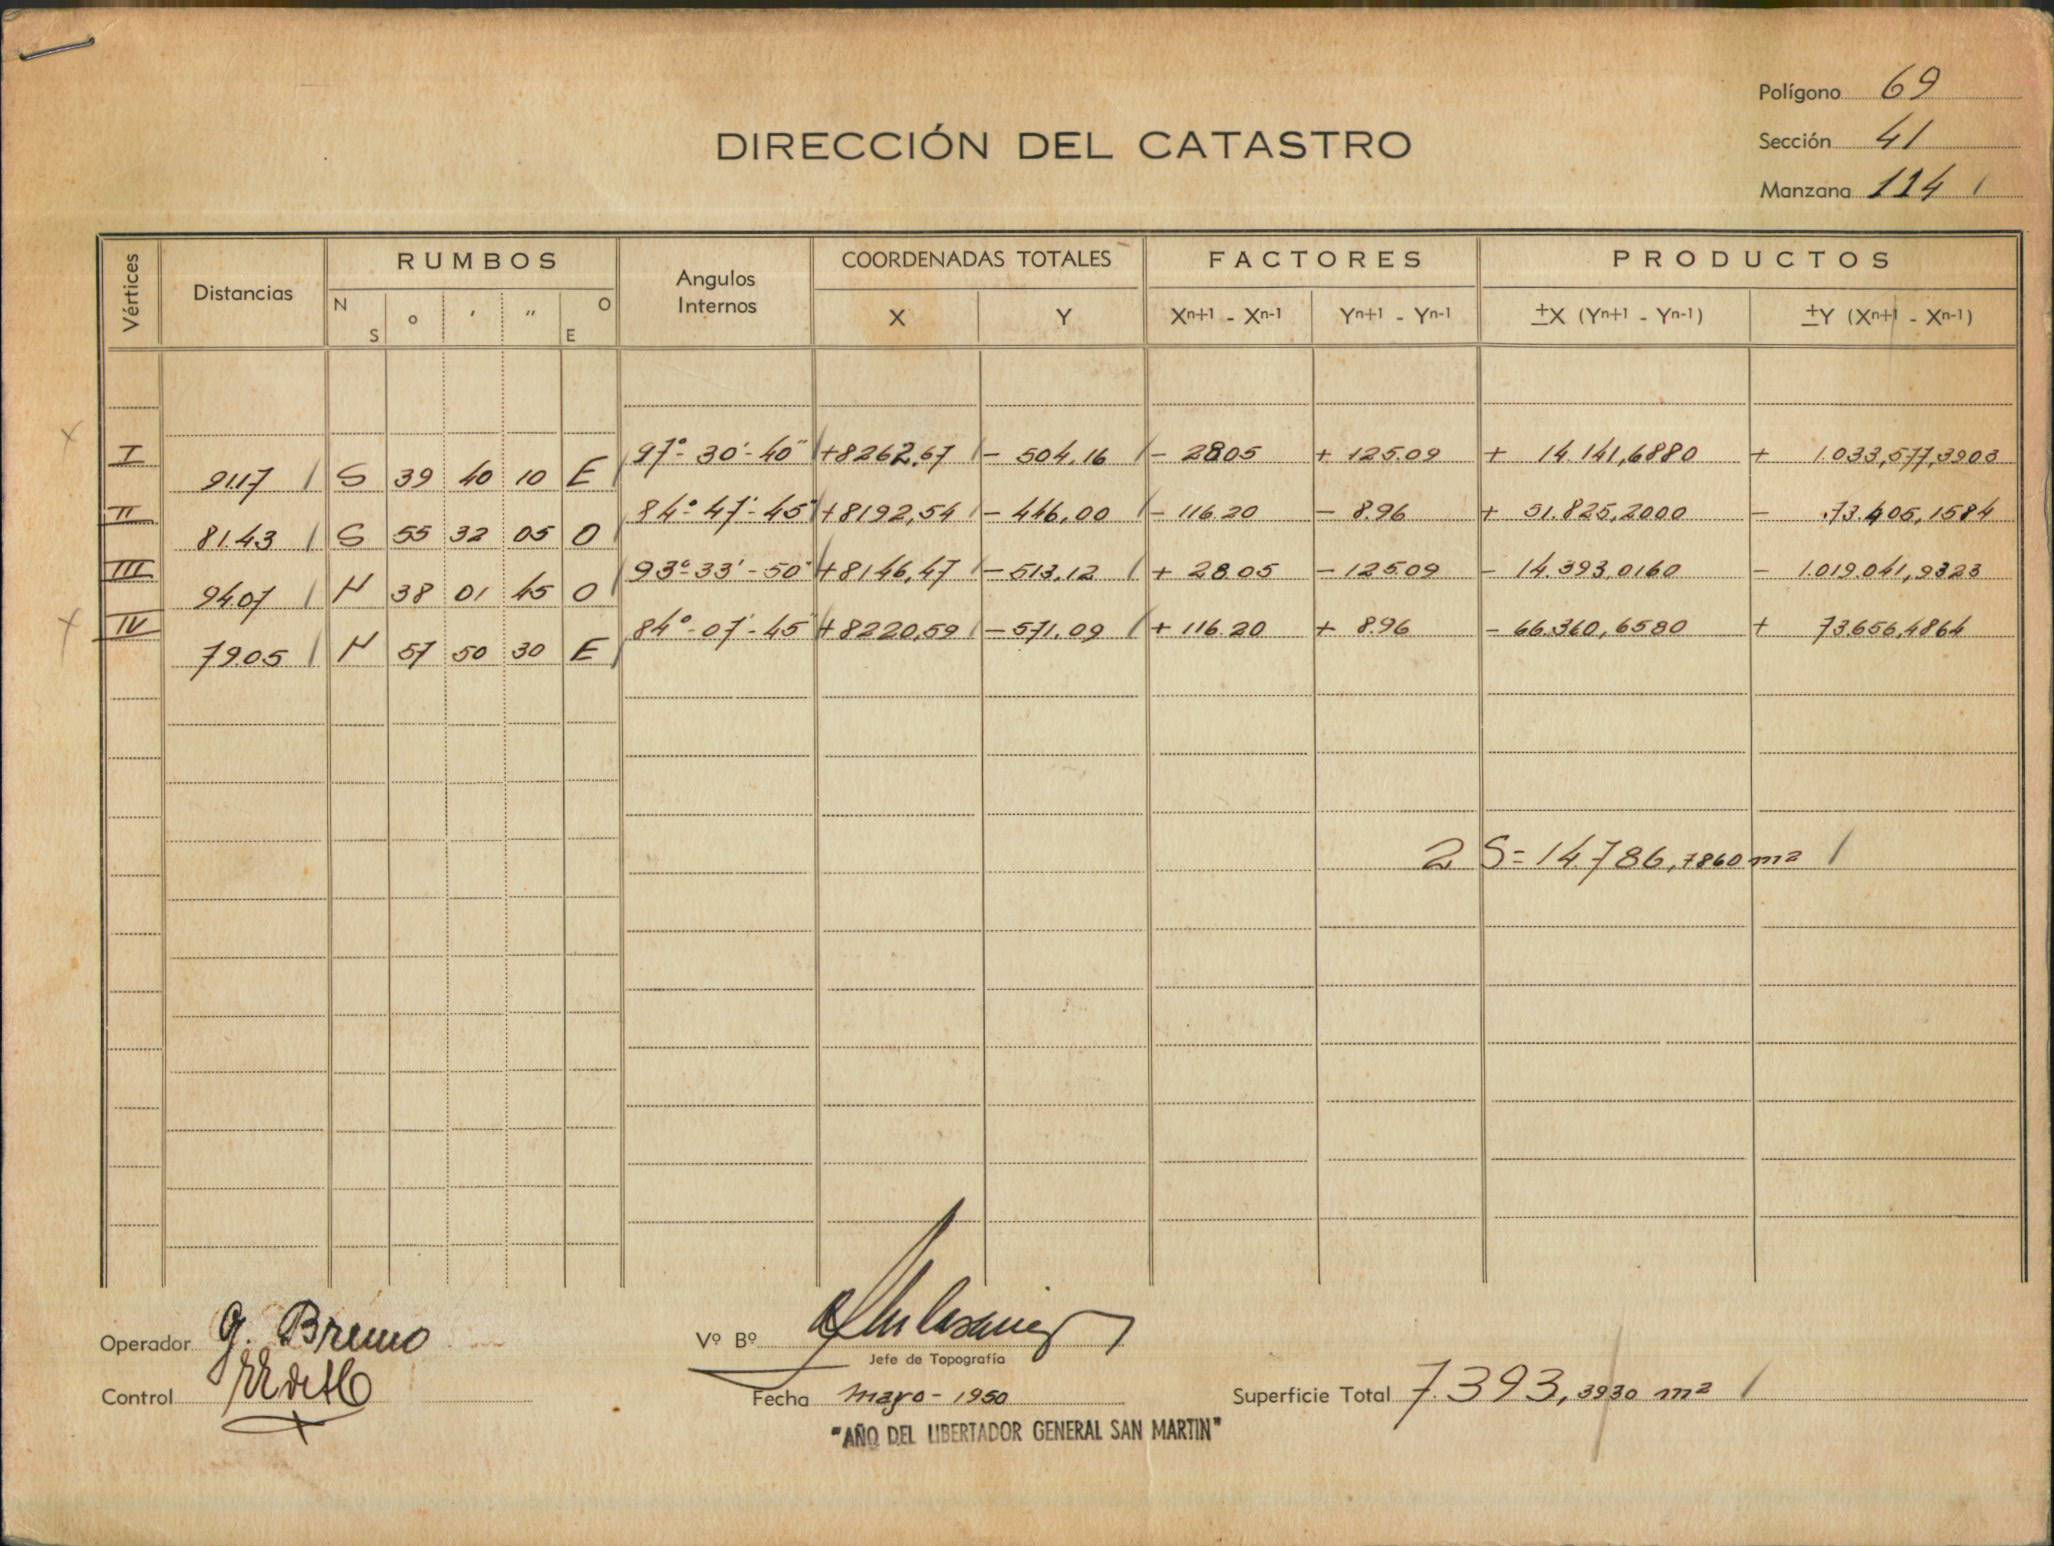 Polígono 69
DIRECCIÓN DEL CATASTRO
Sección 41
Manzana 114
Vértices Distancias RUMBOS Angulos Internos COORDENADAS TOTALES FACTORES PRODUCTOS
N S o ' " O E X Y Xn+1 - Xn-1 Yn+1 - Yn-1 ±X (Yn+1 - Yn-1) ±Y (Xn+1 - Xn-1)
I 97°-30'-40" +8262,67 - 504,16 - 28.05 + 125.09 + 14.141,6880 + 1.033,577,3903
91.17 S 39 40 10 E
II 84°-47'-45" +8192,54 - 446,00 - 116.20 - 8.96 + 51.825,2000 - 73.405,1584
81.43 S 55 32 05 O
III 93°-33'-50" +8146,47 - 513,12 + 28.05 - 125.09 - 14.393,0160 - 1.019.041,9323
94.07 N 38 01 45 O
IV 84°-07'-45" +8220,59 - 571,09 + 116.20 + 8.96 - 66.360,6580 + 73.656,4864
79.05 N 57 50 30 E
2 S = 14.786,7860 m2
Operador G. Bruno
Vº Bº
Jefe de Topografía
Control
Fecha mayo - 1950
Superficie Total 7.393,3930 m2
"AÑO DEL LIBERTADOR GENERAL SAN MARTIN"